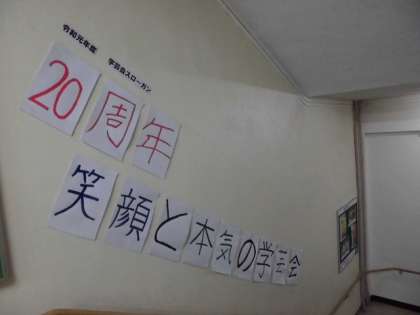 令和元年度 学芸会スローガン
20周年
笑顔と本気の学芸会